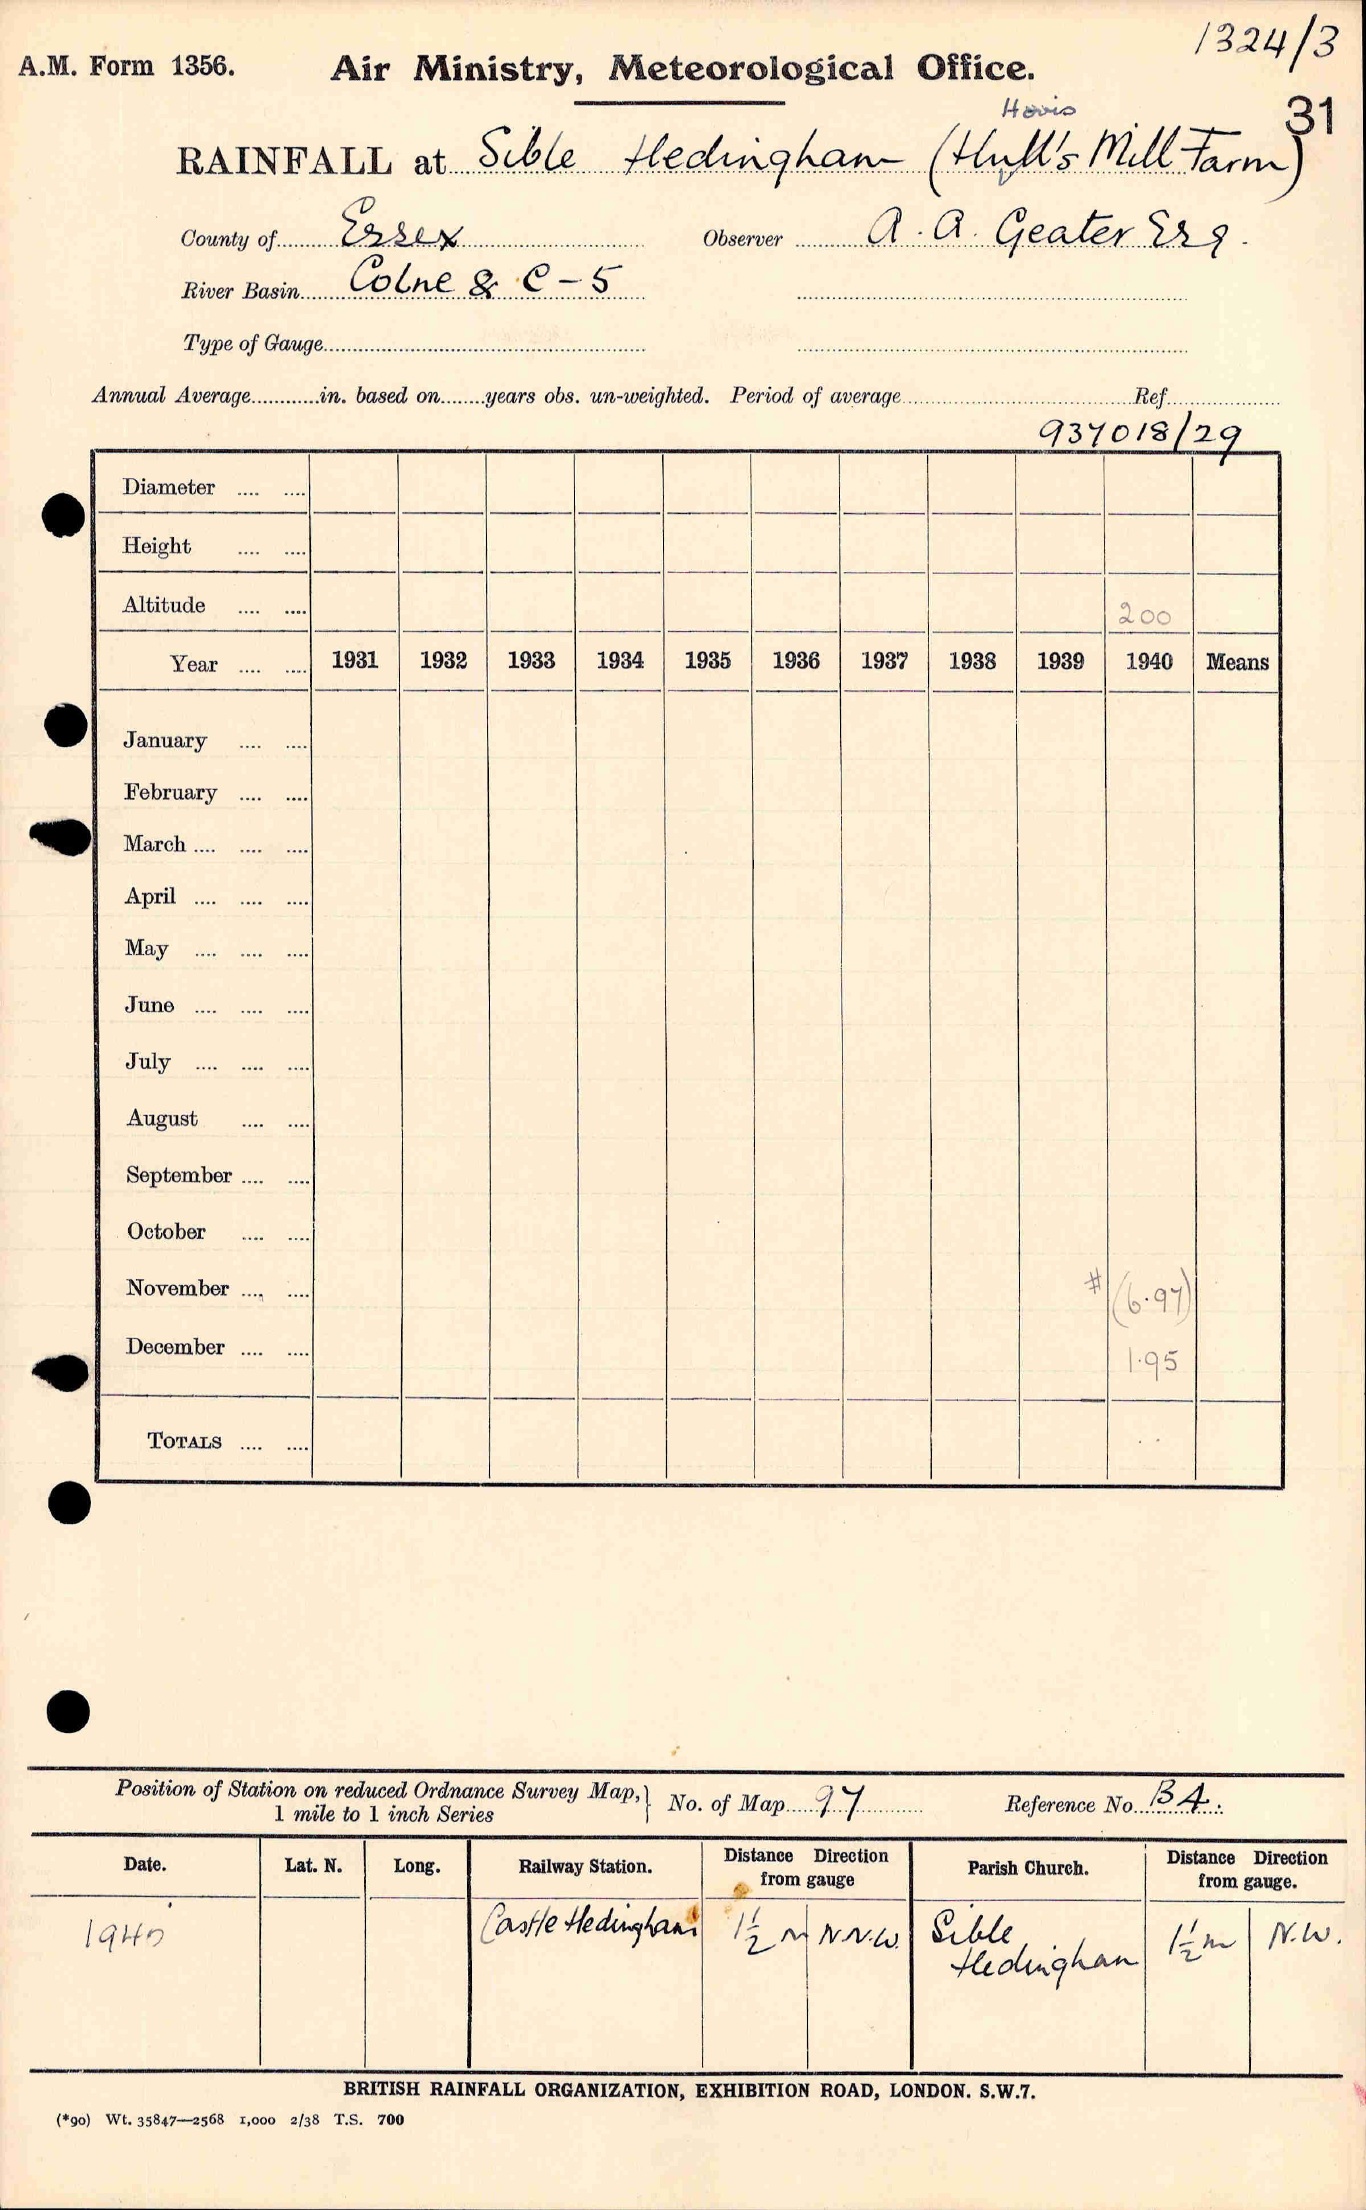 1324/3
A.M. Form 1356. Air Ministry, Meteorological Office.
31
Hovis
RAINFALL at Sible Hedingham (Hull's Mill Farm)
County of Essex Observer A. A. Geater Esq.
River Basin Colne & C-5
Type of Gauge
Annual Average in. based on years obs. un-weighted. Period of average Ref
937018/29
Diameter
Height
Altitude 200
Year 1931 1932 1933 1934 1935 1936 1937 1938 1939 1940 Means
January
February
March
April
May
June
July
August
September
October
November # (6.97)
December 1.95
TOTALS
Position of Station on reduced Ordnance Survey Map, } No. of Map 97 Reference No. B4.
1 mile to 1 inch Series
Date. Lat. N. Long. Railway Station. Distance Direction from gauge Parish Church. Distance Direction from gauge.
1940 Castle Hedingham 1½ m N.N.W. Sible 1½ m N.W.
Hedingham
BRITISH RAINFALL ORGANIZATION, EXHIBITION ROAD, LONDON. S.W.7.
(*90) Wt. 35847—2568 1,000 2/38 T.S. 700